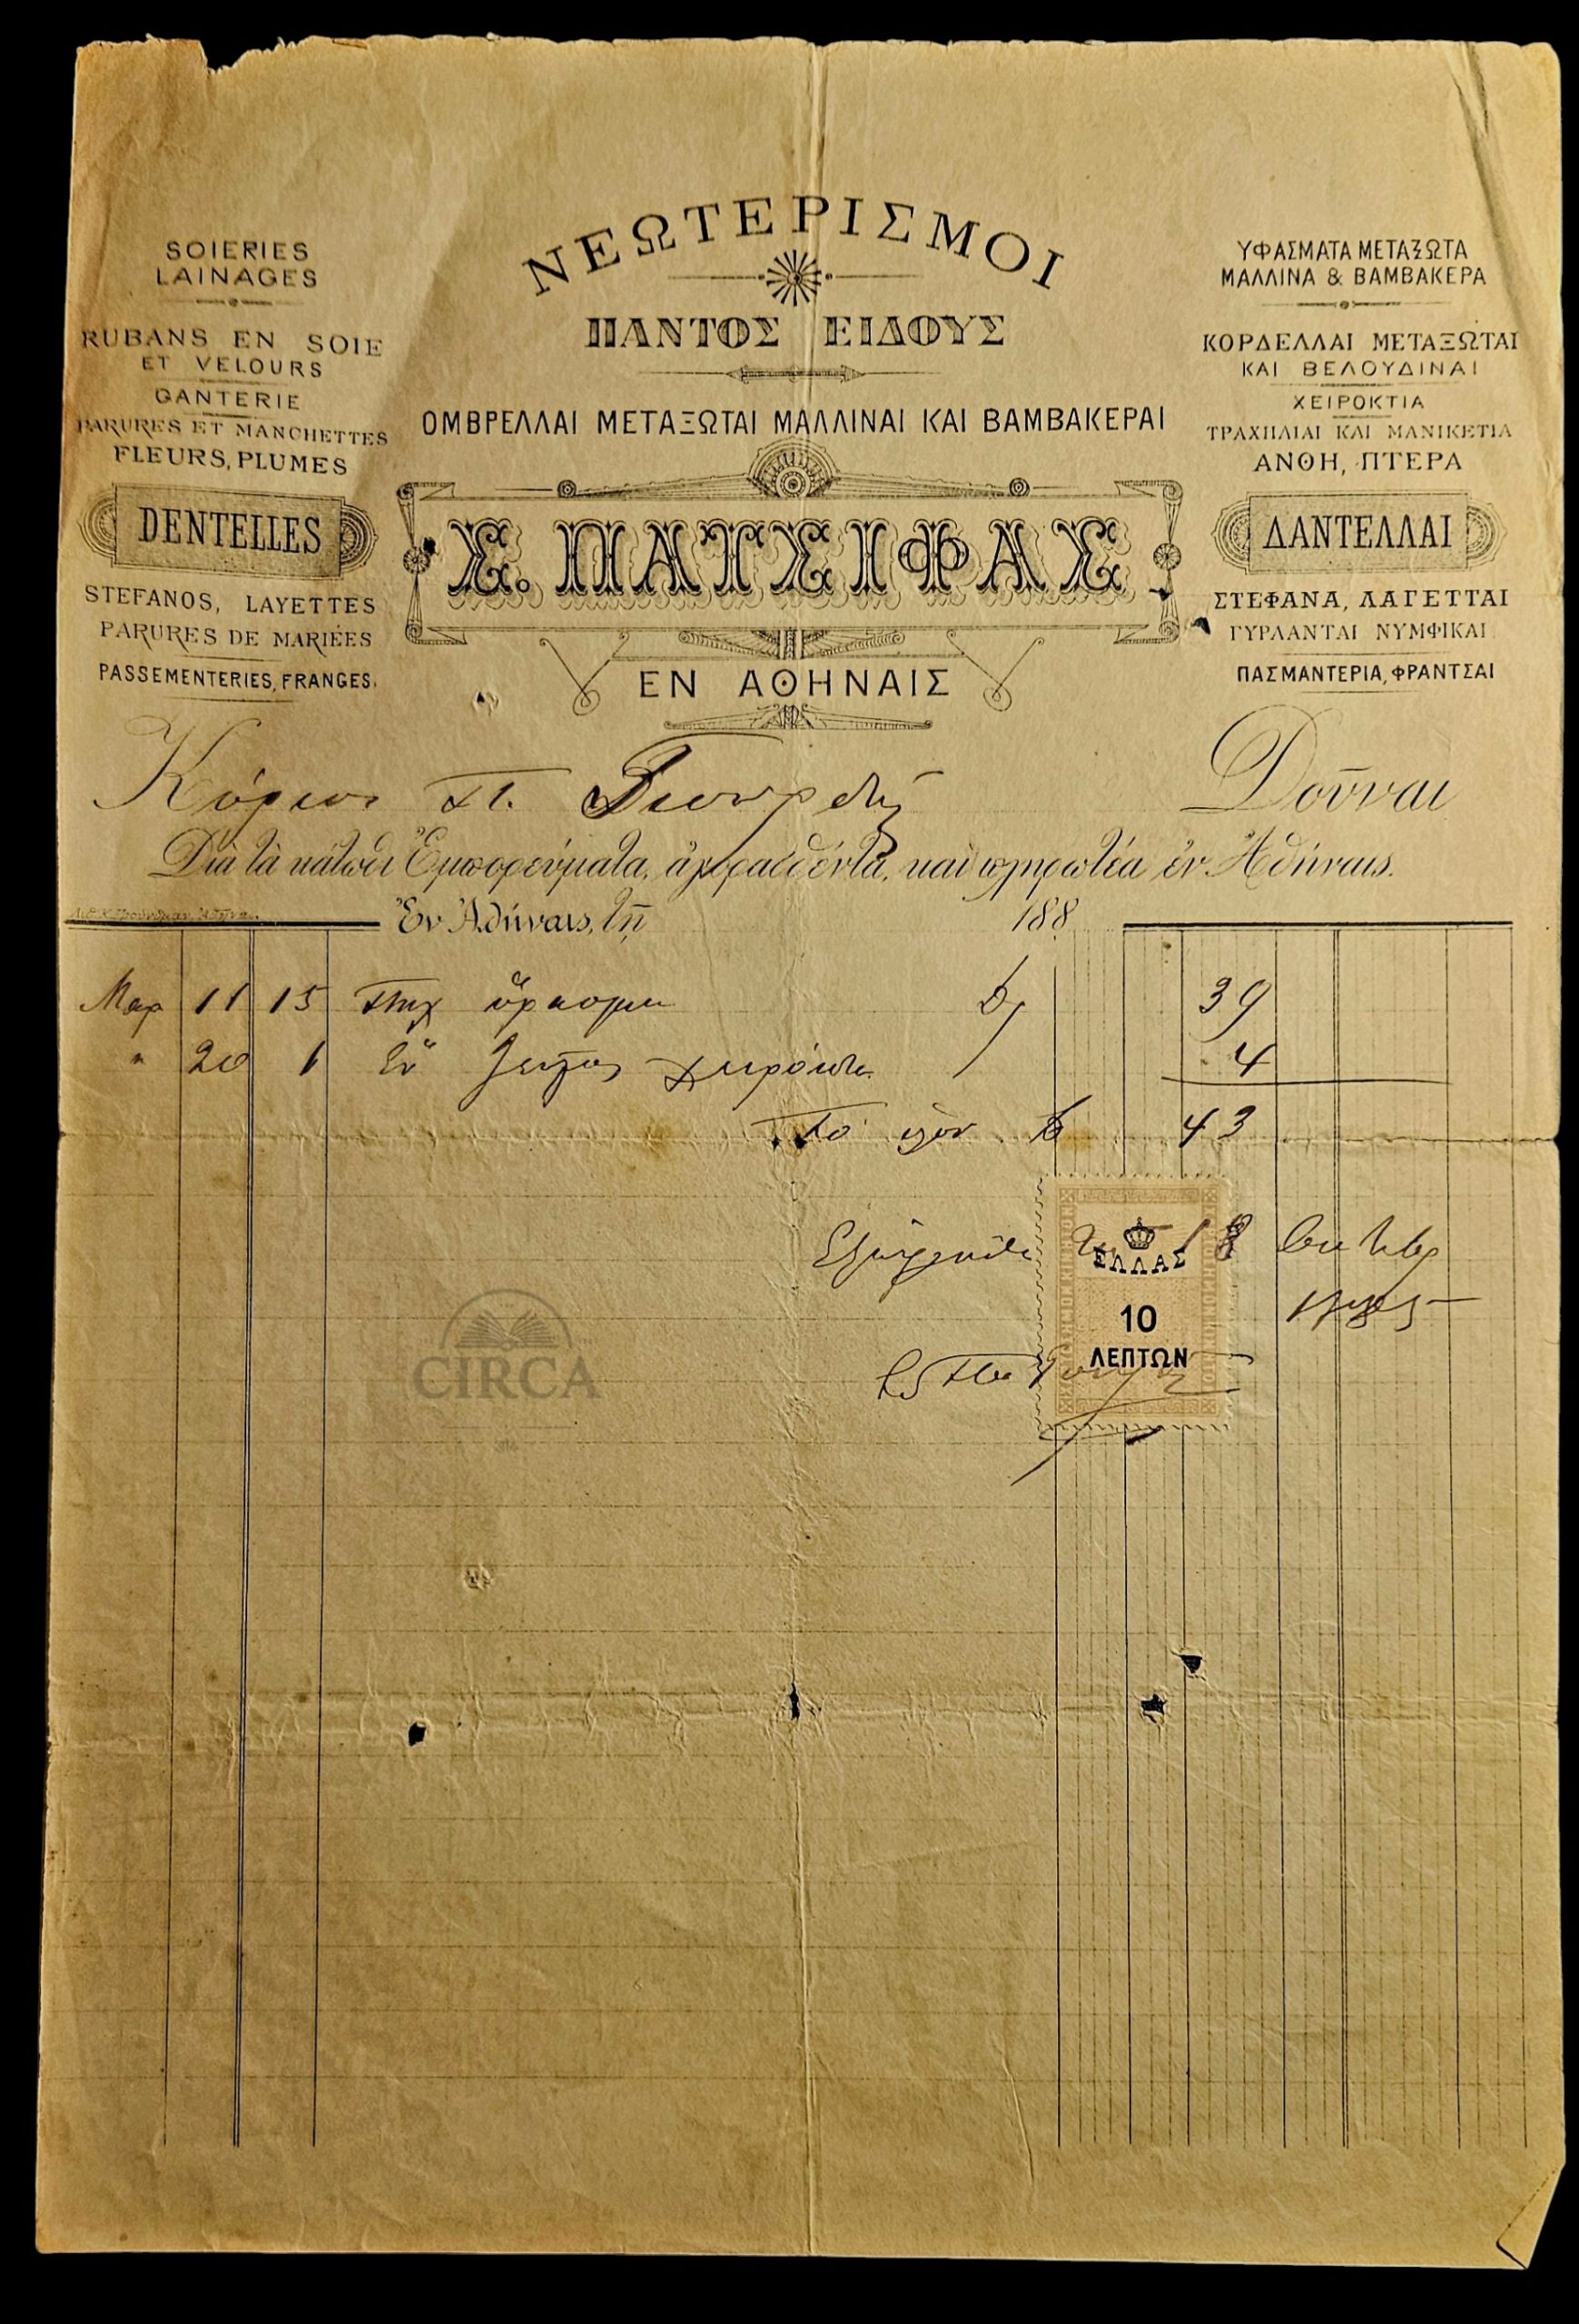 ΝΕΩΤΕΡΙΣΜΟΙ
ΠΑΝΤΟΣ ΕΙΔΟΥΣ
ΟΜΒΡΕΛΛΑΙ ΜΕΤΑΞΩΤΑΙ ΜΑΛΛΙΝΑΙ ΚΑΙ ΒΑΜΒΑΚΕΡΑΙ
SOIERIES
LAINAGES
RUBANS EN SOIE
ET VELOURS
GANTERIE
PARURES ET MANCHETTES
FLEURS, PLUMES
DENTELLES
STEFANOS, LAYETTES
PARURES DE MARIÉES
PASSEMENTERIES, FRANGES.
Σ. ΠΑΤΣΙΦΑΣ
ΕΝ ΑΘΗΝΑΙΣ
ΥΦΑΣΜΑΤΑ ΜΕΤΑΞΩΤΑ
ΜΑΛΛΙΝΑ & ΒΑΜΒΑΚΕΡΑ
ΚΟΡΔΕΛΛΑΙ ΜΕΤΑΞΩΤΑΙ
ΚΑΙ ΒΕΛΟΥΔΙΝΑΙ
ΧΕΙΡΟΚΤΙΑ
ΤΡΑΧΗΛΙΑΙ ΚΑΙ ΜΑΝΙΚΕΤΙΑ
ΑΝΘΗ, ΠΤΕΡΑ
ΔΑΝΤΕΛΛΑΙ
ΣΤΕΦΑΝΑ, ΛΑΓΕΤΤΑΙ
ΓΥΡΛΑΝΤΑΙ ΝΥΜΦΙΚΑΙ
ΠΑΣΜΑΝΤΕΡΙΑ, ΦΡΑΝΤΣΑΙ
Κύριος Π. Δοῦναι
Διὰ τὰ κάτωθι Ἐμπορεύματα, ἀγορασθέντα, καὶ πληρωτέα ἐν Ἀθήναις.
Ἐν Ἀθήναις, τῇ 188
Μαρ 11 15 Πηχ ὕφασμα Δρ 39
" 20 1 Ἓν ζεῦγος χειρόκτια 4
Τὸ ὅλον 43
Εξωφλήθη 18
1885
ΕΛΛΑΣ
10
ΛΕΠΤΩΝ
CIRCA